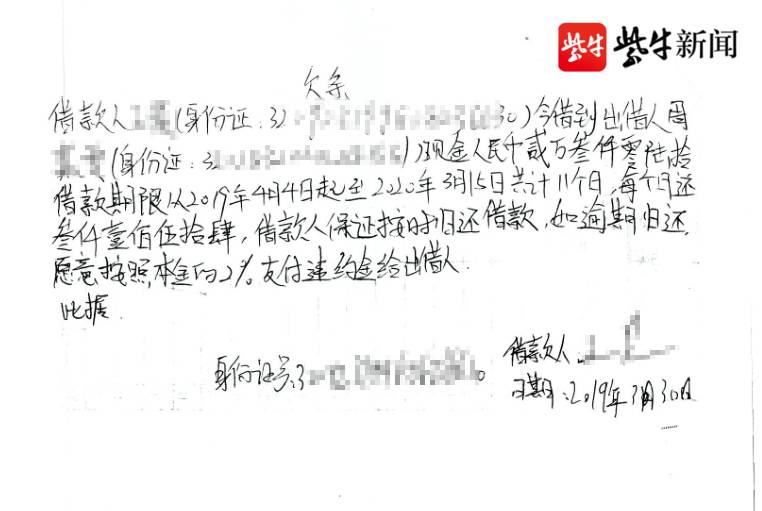 紫牛 紫牛新闻
欠条
借款人(身份证:32 30)今借到出借人周
(身份证:32 1)现金人民千贰万叁仟零陆拾
借款期限从2019年4月4日起至2020年3月15日共计11个日,每个日还
叁仟壹佰伍拾肆,借款人保证按时归还借款,如逾期归还,
愿意按照本金的2%支付违约金给出借人.
此据.
借款人
身份证号:3
日期:2019年3月30日